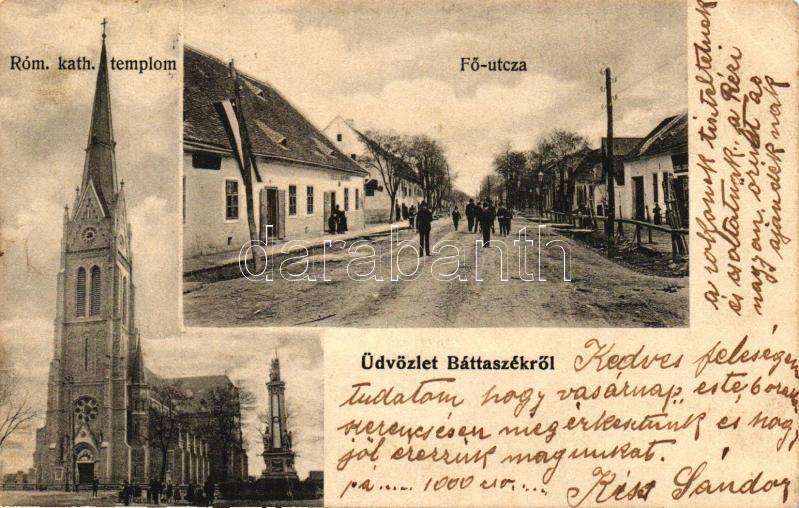 Róm. kath. templom
Fő-utcza
darabanth
Üdvözlet Báttaszékről
Kedves feleségem
tudatom hogy vasárnap este 6 óra
szerencsésen megérkeztünk és hogy
jól érezzük magunkat.
pá..... 1000
Kiss Sándor
a
tiszteltetnek
és a Rézi
nagyon örült az
ajándéknak